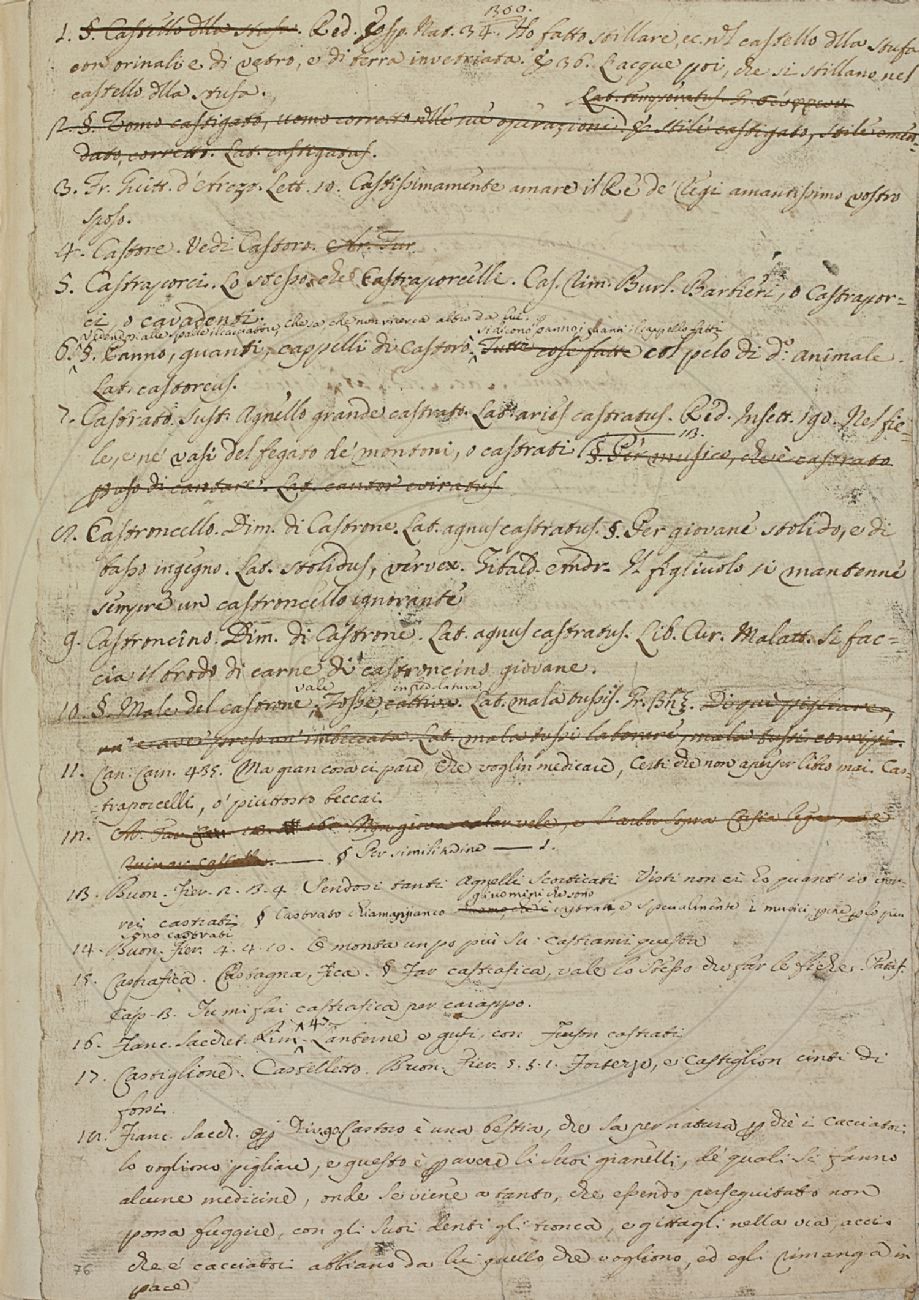 1. §. Castello dlla stufa. Red. Esp. Nat. 34. Ho fatto stillare, ec. nel castello dlla stufa
1300.
con orinali e di vetro, e di terra invetriata. E 36. L'acque poi, che si stillano nel
castello dlla stufa.
Lat. temperatus. Gr.
2. §. Uomo castigato, uomo corretto nelle sue operazioni. E stile castigato, stile emen-
dato, corretto. Lat. castigatus.
3. Fr. Guitt. d'Arezzo. Lett. 10. Castissimamente amare il Re de' Regi amantissimo vostro
sposo.
4. Castore. Vedi Castoro.
5. Castraporci. Lo stesso, che Castraporcelli. Cas. Rim. Burl. Barbieri, o castrapor-
ci, o cavadenti.
Si dicono i panni, i guanti, i cappelli fatti
6. §. Panno, guanti, cappelli di Castoro, Tutti così fatti col pelo di do. animale.
Lat. castoreus.
7. Castrato. Sust. Agnello grande castrato. Lat. aries castratus. Red. Insett. 190. Nel fie-
le, e ne' vasi del fegato de' montoni, o castrati 13. §. Per musico, che è castrato
Lat. cantor eviratus
8. Castroncello. Dim. di Castrone. Lat. agnus castratus. §. Per giovane stolido, e di
basso ingegno. Lat. stolidus, vervex. Il figliuolo si mantenne
sempre un castroncello ignorante
9. Castroncino. Dim. di Castrone. Lat. agnus castratus. Lib. Cur. Malatt. Si fac-
cia il brodo di carne di castroncino giovane.
vale infreddatura
10. §. Male del castrone, Tosse, cattiva. Lat. mala tussis. Gr. βήξ.
e aver preso un'imbeccata. Lat. mala tussi laborare, mala tussi corripi.
11. Can. Carn. 435. Ma gran cosa ci pare, che voglin medicare, Certi che non aperser libro mai. Cas-
traporcelli, o piuttosto beccai
12. §. Per similitudine — 1.
13. Buon. Fier. 2. 3. 4 Sendosi tanti Agnelli scorticati Visti non ci ho quant' io
gli uomini che sono
castrati § Castrato chiamasi anco castrati e specialmente i musici
sono castrati
14. Buon. Fier. 4. 4. 10. E monta un po più su: castiami questa
15. Castrafica. Castagna, Fica. § Far castrafica, vale lo stesso che far le fiche.
Cap. 13. Tu mi fai castrafica per
16. Franc. Sacchet. Rim. 47. Lanterne e gufi, con castrati
17. Castiglione. Castelletto. Buon. Fier. 5. 5. 1. Fortezze, e castiglion cinti di
fossi.
18. Franc. Sacch. Op. Div. 90 Castoro è una bestia, che sa per natura che i cacciatori
lo vogliono pigliare, e questo è per avere li suoi granelli, de' quali si fanno
alcune medicine, onde se viene a tanto, che essendo perseguitato non
possa fuggire, con gli suoi denti gli tronca, e gittagli nella via, acciò
che e' cacciatori abbiano da lui quello che vogliono, ed egli rimanga in
pace
76